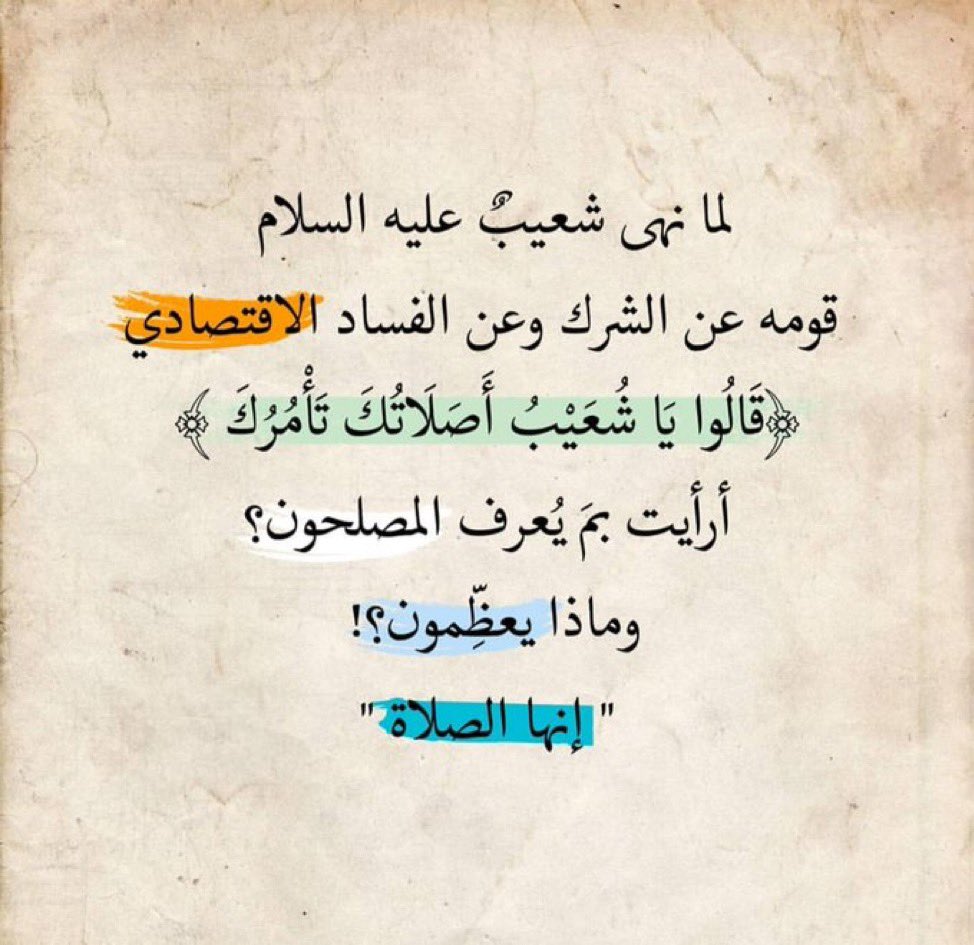 لما نهى شعيبٌ عليه السلام
قومه عن الشرك وعن الفساد الاقتصادي
﴿قَالُوا يَا شُعَيْبُ أَصَلَاتُكَ تَأْمُرُكَ ﴾
أرأيت بمَ يُعرف المصلحون؟
وماذا يعظِّمون؟!
" إنها الصلاة "